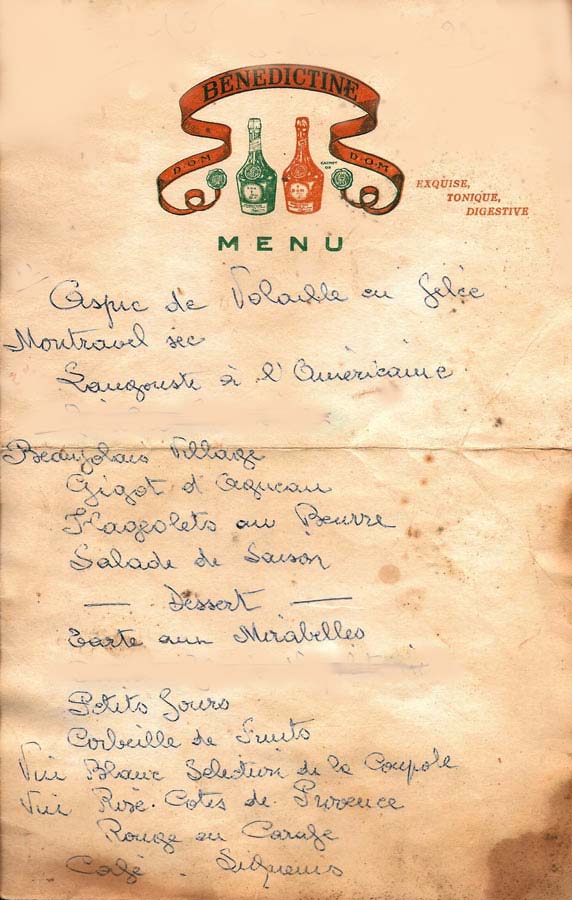 BENEDICTINE
D.O.M
D.O.M
EXQUISE,
TONIQUE,
DIGESTIVE
MENU
Aspic de Volaille en Gelée
Montravel sec
Langouste à l'Américaine
Beaujolais Village
Gigot d'Agneau
Flageolets au Beurre
Salade de Saison
— Dessert —
Tarte aux Mirabelles
Petits Fours
Corbeille de Fruits
Vin Blanc Sélection de la Coupole
Vin Rosé. Cotes de Provence
Rouge en Carafe
Café - Liqueurs